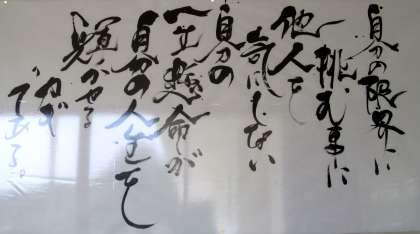 自分の限界に
挑む事に
他人を
気にしない
自分の
一生懸命が
自分の人生を
輝かせる
力で
である。